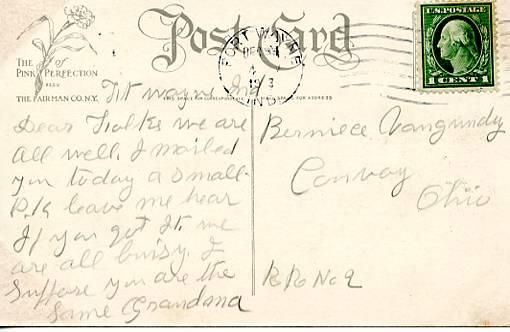 Post Card
THE Pink of PERFECTION
THE FAIRMAN CO. N.Y.
THIS SPACE FOR CORRESPONDENCE
FOR ADDRESS
FORT WAYNE
IND.
U.S. POSTAGE
1 CENT 1
Ft wayne Ind
Dear Folks we are
all well. I mailed
you today a small
P.K leave me hear
If you got It. we
are all buisy. I
Suppose you are the
Same Grandma
Berniece Vangundy
Convoy
Ohio
RR No 2